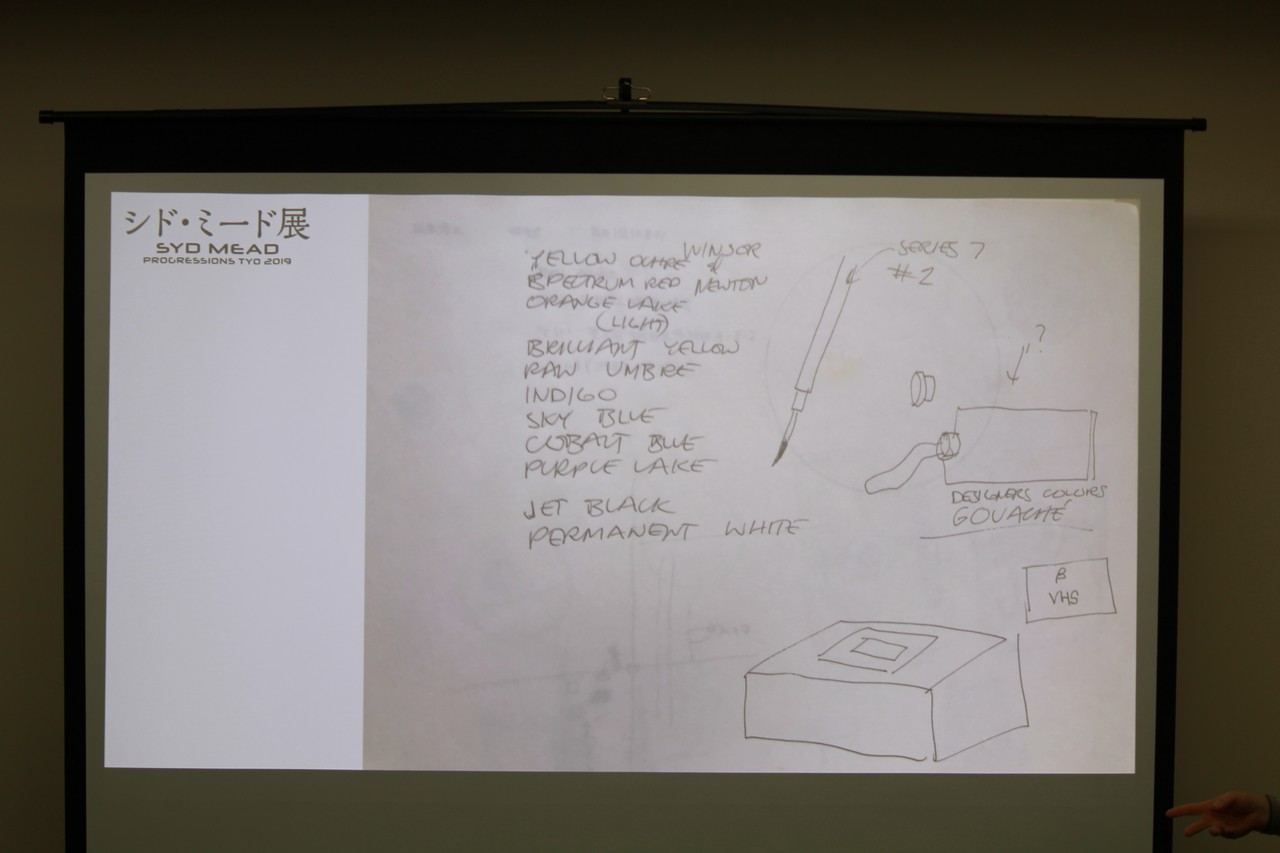 シド・ミード展
SYD MEAD
PROGRESSIONS TYO 2019
YELLOW OCHRE
SPECTRUM RED
ORANGE LAKE
(LIGHT)
BRILLIANT YELLOW
RAW UMBRE
INDIGO
SKY BLUE
COBALT BLUE
PURPLE LAKE
JET BLACK
PERMANENT WHITE
WINSOR
&
NEWTON
SERIES 7
#2
?
DESIGNERS COLORS
GOUACHÉ
β
VHS